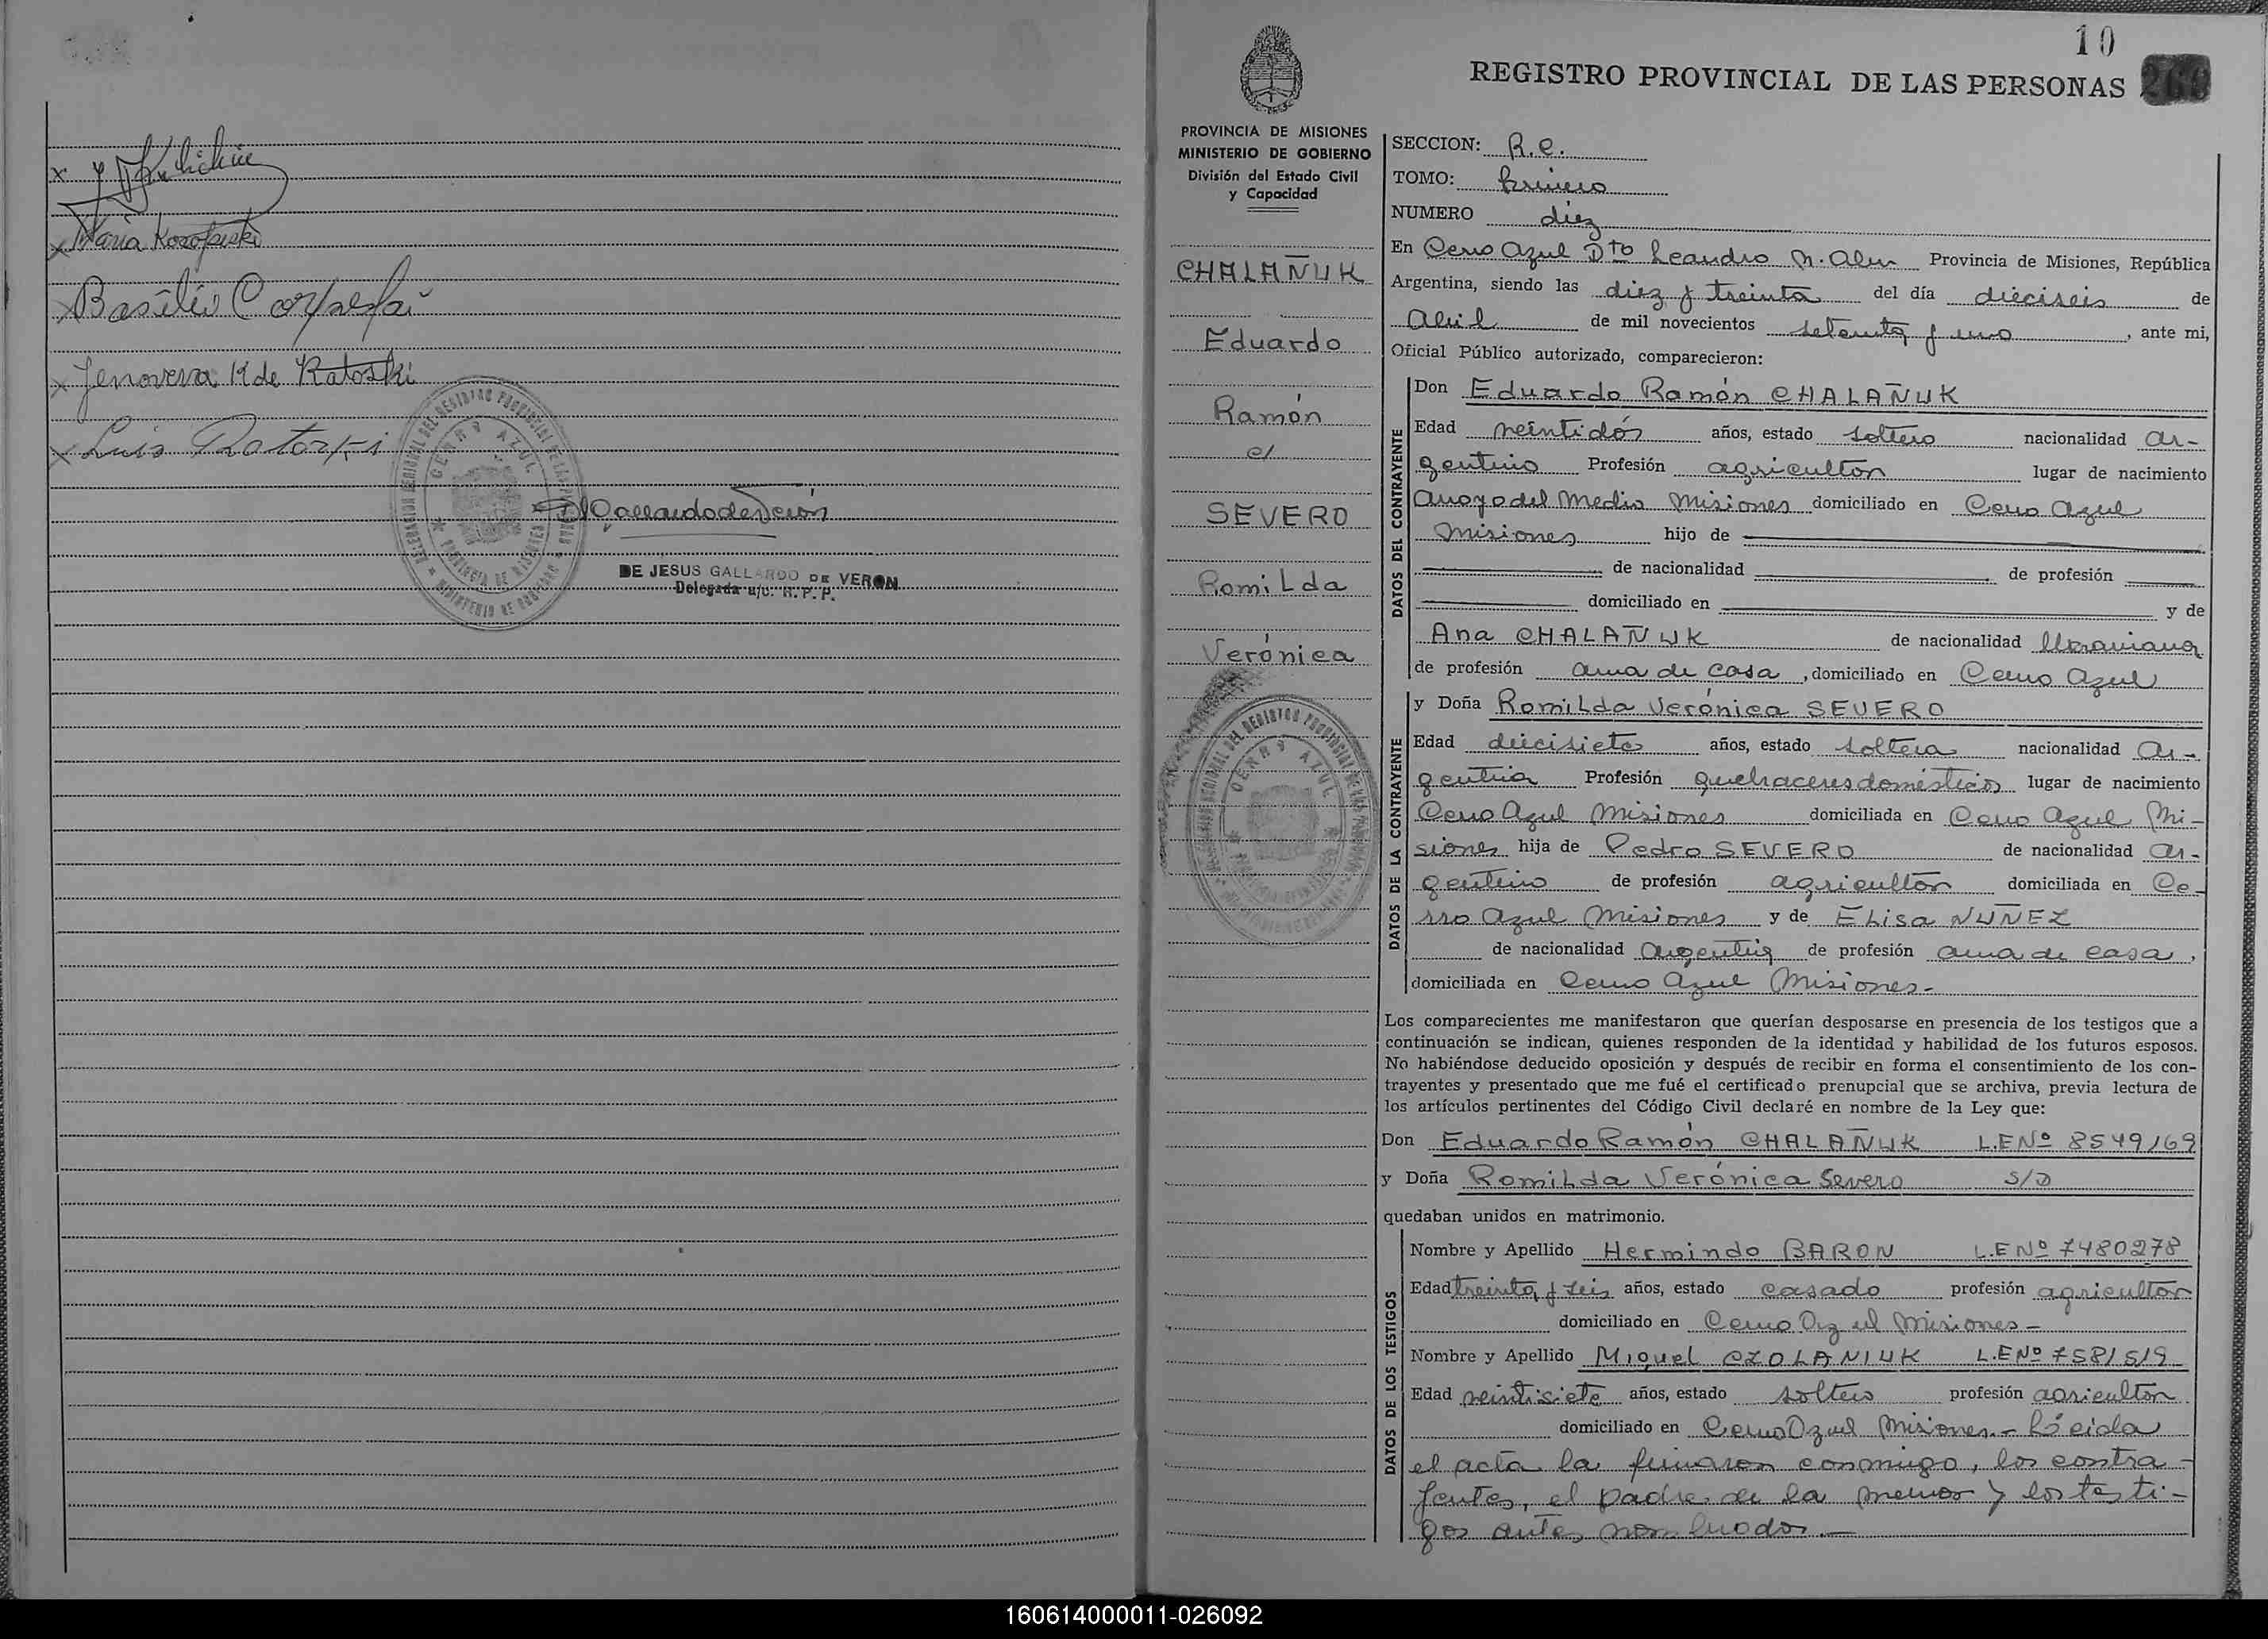 x
x Maria Kozopeski
x Basilio
x Jenoveva K de Ratoski
x Luis Ratoski
DELEGACION REGIONAL DEL REGISTRO PROVINCIAL DE LAS PERSONAS
CERRO AZUL
PROVINCIA DE MISIONES
MINISTERIO DE GOBIERNO
DE JESUS GALLARDO DE VERON
Delegada a/c. R. P. P.
10
REGISTRO PROVINCIAL DE LAS PERSONAS 260
PROVINCIA DE MISIONES
MINISTERIO DE GOBIERNO
División del Estado Civil
y Capacidad
CHALAÑUK
Eduardo
Ramón
c/
SEVERO
Romilda
Verónica
DELEGACION REGIONAL DEL REGISTRO PROVINCIAL DE LAS PERSONAS
CERRO AZUL
SECCION: R.e.
TOMO: Primero
NUMERO diez
En Cerro Azul Dto Leandro N. Alem Provincia de Misiones, República
Argentina, siendo las diez y treinta del día dieciseis de
Abril de mil novecientos setenta y uno, ante mi,
Oficial Público autorizado, comparecieron:
DATOS DEL CONTRAYENTE
Don Eduardo Ramón CHALAÑUK
Edad veintidós años, estado soltero nacionalidad ar-
gentino Profesión agricultor lugar de nacimiento
Arroyo del Medio Misiones domiciliado en Cerro Azul
Misiones hijo de
de nacionalidad de profesión
domiciliado en y de
Ana CHALAÑUK de nacionalidad Ucraniana
de profesión ama de casa, domiciliado en Cerro Azul
DATOS DE LA CONTRAYENTE
y Doña Romilda Verónica SEVERO
Edad diecisiete años, estado soltera nacionalidad ar-
gentina Profesión quehaceres domésticos lugar de nacimiento
Cerro Azul Misiones domiciliada en Cerro Azul Mi-
siones hija de Pedro SEVERO de nacionalidad ar-
gentino de profesión agricultor domiciliada en Ce-
rro Azul Misiones y de Elisa NUÑEZ
de nacionalidad Argentina de profesión ama de casa,
domiciliada en Cerro Azul Misiones-
Los comparecientes me manifestaron que querían desposarse en presencia de los testigos que a
continuación se indican, quienes responden de la identidad y habilidad de los futuros esposos.
No habiéndose deducido oposición y después de recibir en forma el consentimiento de los con-
trayentes y presentado que me fué el certificado prenupcial que se archiva, previa lectura de
los artículos pertinentes del Código Civil declaré en nombre de la Ley que:
Don Eduardo Ramón CHALAÑUK L.E Nº 8549169
y Doña Romilda Verónica Severo S/D
quedaban unidos en matrimonio.
DATOS DE LOS TESTIGOS
Nombre y Apellido Hermindo BARON L.E Nº 7480278
Edad treinta y seis años, estado casado profesión agricultor
domiciliado en Cerro Azul Misiones-
Nombre y Apellido Miguel CZOLANIUK L.E Nº 7581519
Edad veintisiete años, estado soltero profesión agricultor
domiciliado en Cerro Azul Misiones.- Léeida
el acta la firmaron conmigo, los contra-
yentes, el padre de la menor y los testi-
gos antes nombrados.-
160614000011-026092